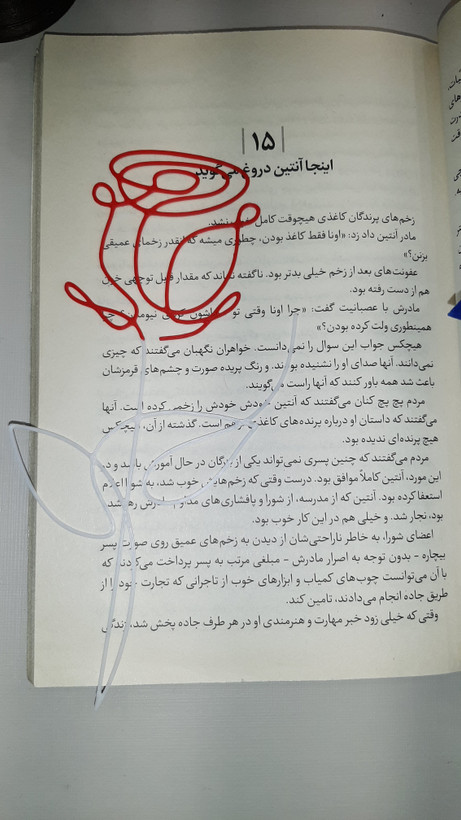 ۱۵
اینجا آنتین دروغ می‌گوید
زخم‌های پرندگان کاغذی هیچوقت کامل نشد.
مادر آنتین داد زد: «اونا فقط کاغذ بودن، چطوری میشه که انقدر زخمای عمیقی
بزنن؟»
عفونت‌های بعد از زخم خیلی بدتر بود. ناگفته نماند که مقدار قابل توجهی خون
هم از دست رفته بود.
مادرش با عصبانیت گفت: «چرا اونا وقتی تو نیومدن؟
همینطوری ولت کرده بودن؟»
هیچکس جواب این سوال را نمی‌دانست. خواهران نگهبان می‌گفتند که چیزی
نمی‌دانند. آنها صدای او را نشنیده بودند. و رنگ پریده صورت و چشم‌های قرمزشان
باعث شد همه باور کنند که آنها راست می‌گویند.
مردم پچ پچ کنان می‌گفتند که آنتین خودش خودش را زخمی کرده است. آنها
می‌گفتند که داستان او درباره پرنده‌های کاغذی است. گذشته از آن، هیچکس
هیچ پرنده‌ای ندیده بود.
مردم می‌گفتند که چنین پسری نمی‌تواند یکی از بزرگان در حال آموزش باشد و در
این مورد، آنتین کاملاً موافق بود. درست وقتی که زخم‌هایش خوب شد، به شورا اعلام
استعفا کرده بود. آنتین که از مدرسه، از شورا و پافشاری‌های مداوم مادرش رها شده
بود، نجار شد. و خیلی هم در این کار خوب بود.
اعضای شورا، به خاطر ناراحتی‌شان از دیدن به زخم‌های عمیق روی صورت پسر
بیچاره - بدون توجه به اصرار مادرش - مبلغی مرتب به پسر پرداخت می‌کردند که
با آن می‌توانست چوب‌های کمیاب و ابزارهای خوب از تاجرانی که تجارت خود را از
طریق جاده انجام می‌دادند، تامین کند.
وقتی که خیلی زود خبر مهارت و هنرمندی او در هر طرف جاده پخش شد، زندگی